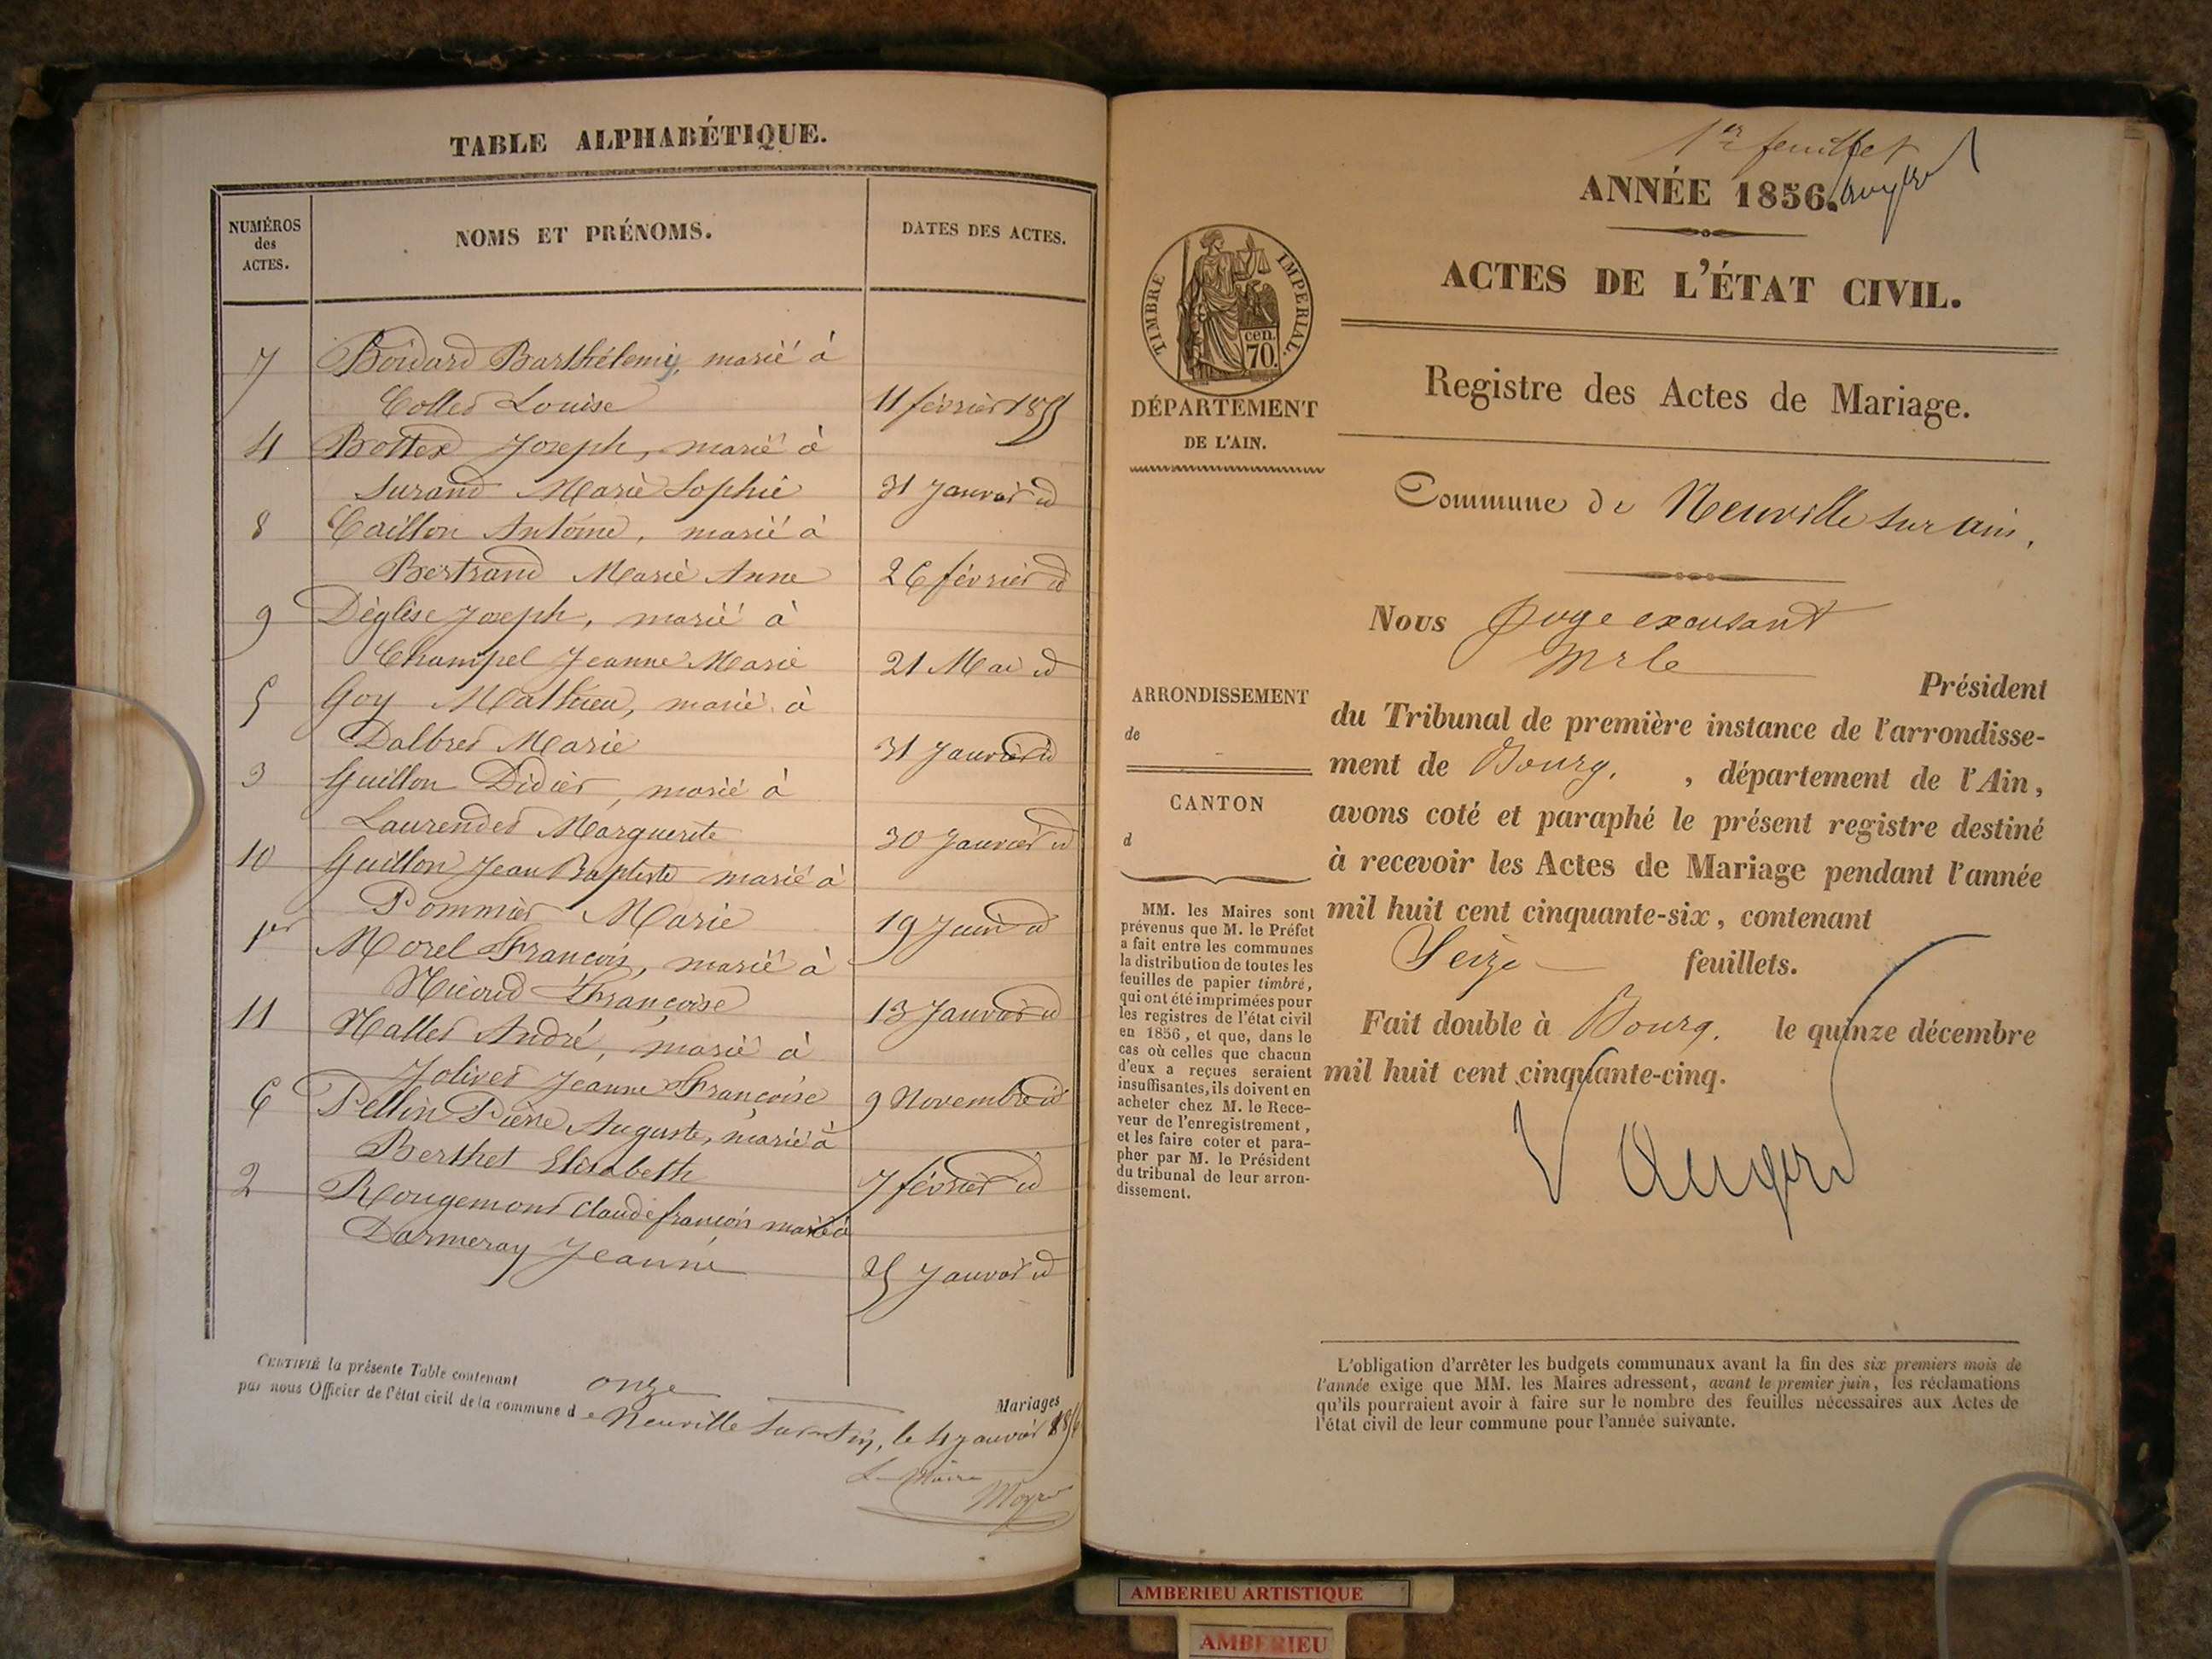 TABLE ALPHABÉTIQUE.
NUMÉROS
des
ACTES.
NOMS ET PRÉNOMS.
DATES DES ACTES.
7 Boidard Barthélemy, marié à
Collet Louise 11 février 1855
4 Bottex Joseph, marié à
Surand Marie Sophie 31 Janvier id
8 Caillon Antoine, marié à
Bertrand Marie Anne 26 février id
9 Déglise Joseph, marié à
Champel Jeanne Marie 21 Mai id
5 Goy Mathieu, marié à
Dalbret Marie 31 Janvier id
3 Guillon Didier, marié à
Laurendet Marguerite 30 Janvier id
10 Guillon Jean Baptiste marié à
Pommier Marie 19 Juin id
1er Morel François, marié à
Nicoud Françoise 13 Janvier id
11 Nallet André, marié à
Jolivet Jeanne Françoise 9 Novembre id
6 Pellin Pierre Auguste, marié à
Berthet Elisabeth 7 février id
2 Rougemont Claude françois marié à
Darmeray Jeanne 25 Janvier id
CERTIFIÉ la présente Table contenant onze Mariages
par nous Officier de l'état civil de la commune de Neuville sur Ain, le 4 janvier 1856
Le Maire
1er feuillet
ANNÉE 1856.
Auger
ACTES DE L'ÉTAT CIVIL.
TIMBRE IMPERIAL.
cen.
70.
DÉPARTEMENT
DE L'AIN.
Registre des Actes de Mariage.
Commune de Neuville sur ain,
Nous Juge excusant
Mr le
Président
ARRONDISSEMENT
de
CANTON
d
du Tribunal de première instance de l'arrondisse-
ment de Bourg. , département de l'Ain,
avons coté et paraphé le présent registre destiné
à recevoir les Actes de Mariage pendant l'année
mil huit cent cinquante-six, contenant
Seize feuillets.
Fait double à Bourg. le quinze décembre
mil huit cent cinquante-cinq.
Auger
MM. les Maires sont
prévenus que M. le Préfet
a fait entre les communes
la distribution de toutes les
feuilles de papier timbré,
qui ont été imprimées pour
les registres de l'état civil
en 1856, et que, dans le
cas où celles que chacun
d'eux a reçues seraient
insuffisantes, ils doivent en
acheter chez M. le Rece-
veur de l'enregistrement,
et les faire coter et para-
pher par M. le Président
du tribunal de leur arron-
dissement.
L'obligation d'arrêter les budgets communaux avant la fin des six premiers mois de
l'année exige que MM. les Maires adressent, avant le premier juin, les réclamations
qu'ils pourraient avoir à faire sur le nombre des feuilles nécessaires aux Actes de
l'état civil de leur commune pour l'année suivante.
AMBERIEU ARTISTIQUE
AMBERIEU